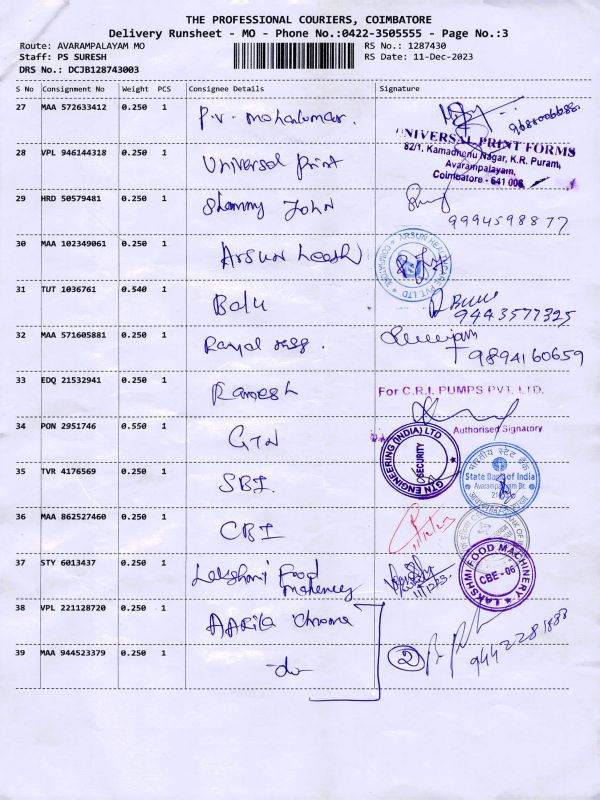 THE PROFESSIONAL COURIERS, COIMBATORE
Delivery Runsheet - MO - Phone No.:0422-3505555 - Page No.:3
Route: AVARAMPALAYAM MO
RS No.: 1287430
Staff: PS SURESH
RS Date: 11-Dec-2023
DRS No.: DCJB128743003
S No Consignment No Weight PCS Consignee Details Signature
27 MAA 572633412 0.250 1 P.V. Mohankumar.
UNIVERSAL PRINT FORMS
82/1, Kamadhenu Nagar, K.R. Puram,
Avarampalayam,
Coimbatore - 641 006
28 VPL 946144318 0.250 1 Universal Print
29 HRD 50579481 0.250 1 Shammy John
9994598877
30 MAA 102349061 0.250 1 Arsun Health
ARSUN HEALTHCARE PVT. LTD
COIMBATORE
31 TUT 1036761 0.540 1 Balu
9443577325
32 MAA 571605881 0.250 1 Royal
9894160659
33 EDQ 21532941 0.250 1 Ramesh
For C.R.I. PUMPS PVT. LTD.
Authorised Signatory
34 PON 2951746 0.550 1 GTN
GTN ENGINEERING (INDIA) LTD
SECURITY
35 TVR 4176569 0.250 1 SBI.
भारतीय स्टेट बैंक
State Bank of India
Avarampalayam Br.
36 MAA 862527460 0.250 1 CBI
37 STY 6013437 0.250 1 Lakshmi Food
Machinery
LAKSHMI FOOD MACHINERY
CBE - 06
38 VPL 221128720 0.250 1 AARila Chrome
39 MAA 944523379 0.250 1 -do-
2